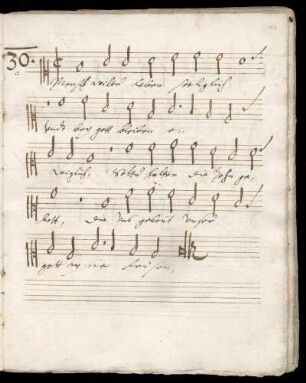 30.
Mensch wiltu leben seliglich
Undt bey gott bleiben e
wiglich, Soltu halten die Zehn ge,
bott, die uns gebeut unser
gott